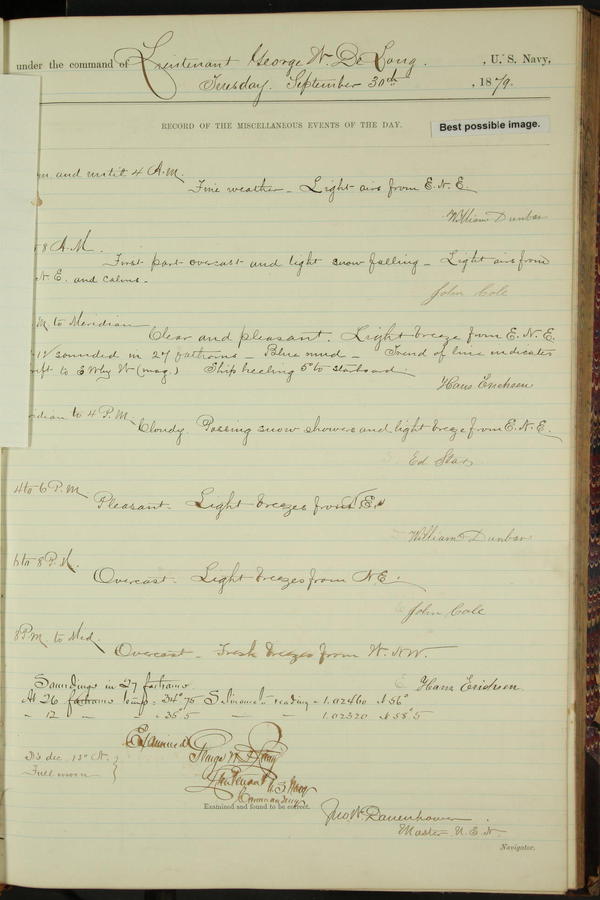 under the command of Lieutenant George W. De Long. , U. S. Navy,
Tuesday. September 30th , 1879.
RECORD OF THE MISCELLANEOUS EVENTS OF THE DAY.
Best possible image.
and until 4 A.M.
Fine weather - Light airs from E.N.E.
William Dunbar
8 A.M.
First part overcast and light snow falling - Light airs from
N.E. and calms.
John Cole
M to Meridian
Clear and pleasant. Light breeze from E.N.E.
sounded in 27 fathoms - Blue mud - Trend of line indicates
to (mag.) Ship heeling 5° to starboard.
Hans Erichsen
to 4 P.M.
Cloudy. Passing snow showers and light breeze from E.N.E.
Ed Star
4 to 6 P.M.
Pleasant. Light breezes from N.E.
William Dunbar
6 to 8 P.M.
Overcast. Light breezes from N.E.
John Cole
8 P.M. to Mid.
Overcast - Fresh breezes from W.N.W.
Soundings in 27 fathoms
Hans Erichsen
At 26 fathoms temp = 34°75 reading = 1.02460 at 56°
" 12 " " 35°5 " " 1.02320 at 58°5
Examined
George W. De Long
Lieutenant U.S. Navy
Commanding
Full moon
Examined and found to be correct.
Jno W. Danenhower
Master U.S.N.
Navigator.